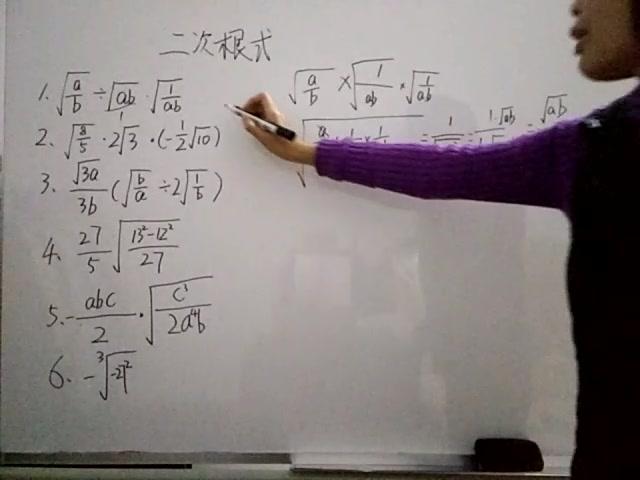 二次根式
1. √(a/b) ÷ √(ab) · √(1/ab)
2. √(8/5) · 2√3 · (-1/2√10)
3. √3a/3b (√(b/a) ÷ 2√(1/b))
4. 27/5 √((13²-12²)/27)
5. -abc/2 · √(c³/2a⁴b)
6. -³√(-2)²
√(a/b) × √(1/ab) × √(1/ab)